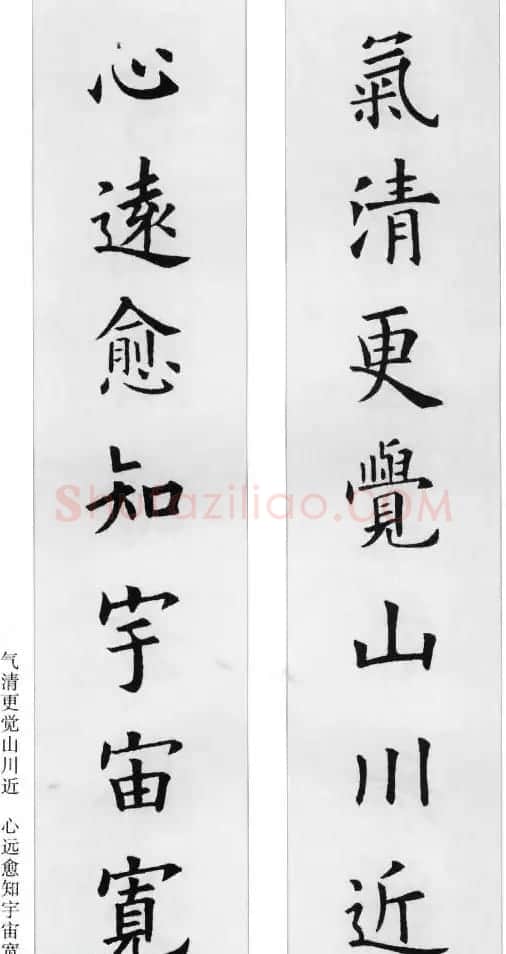 氣清更覺山川近
心遠愈知宇宙寬
气清更觉山川近 心远愈知宇宙宽
Shufaziliao.COM